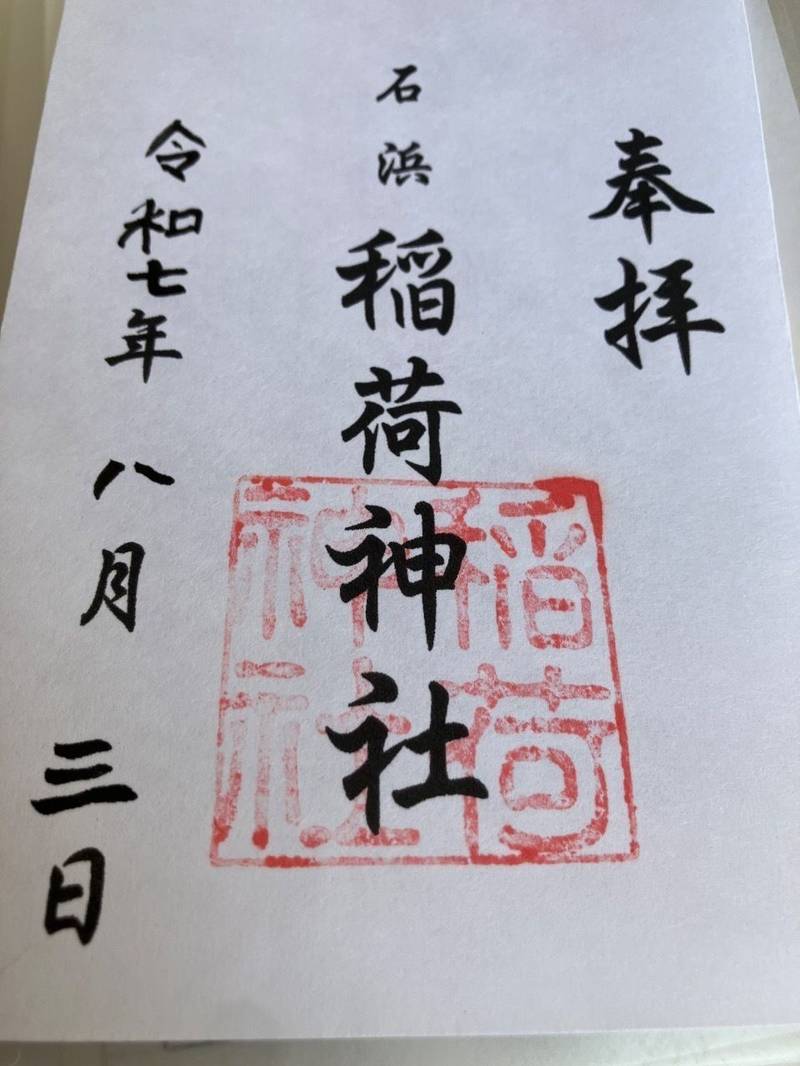 奉拝
石浜稲荷神社
稲荷神社
令和七年八月三日